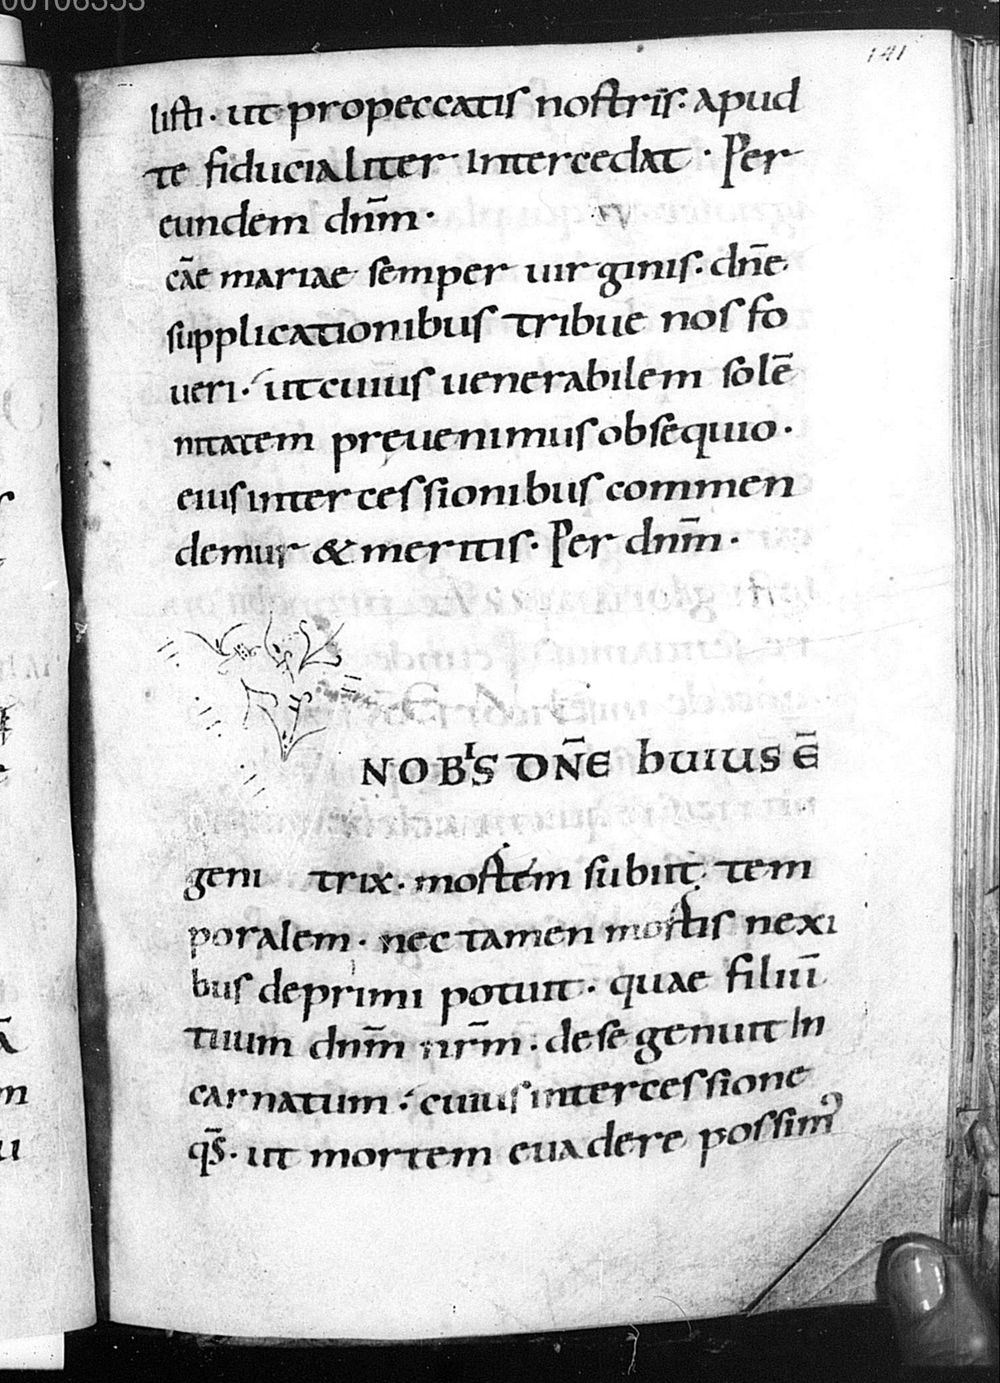 00106353
141
listi · ut propeccatis nostris · apud
te fiducialiter intercedat · Per
eundem dnm̄ ·
cāe mariae semper uirginis · dn̄e
supplicationibus tribue nos fo
ueri · ut cuius uenerabilem solē
nitatem pręuenimus obsequio ·
eius intercessionibus commen
demur & meritis · Per dnm̄ ·
NOBIS DN̄E huius ē
geni trix · mostem subiit tem
poralem · nec tamen mostis nexi
bus deprimi potuit · quae filiū
tuum dnm̄ nrm̄ · de se genuit in
carnatum · cuius intercessione
qs̄ · ut mortem euadere possim᾿